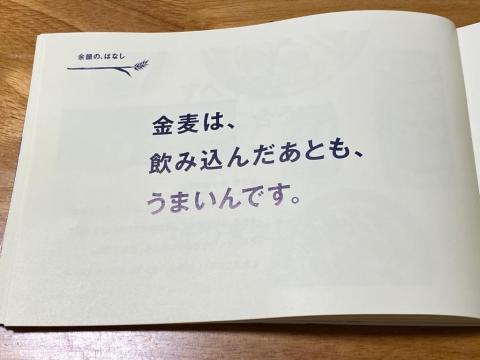 余韻の、はなし
金麦は、
飲み込んだあとも、
うまいんです。